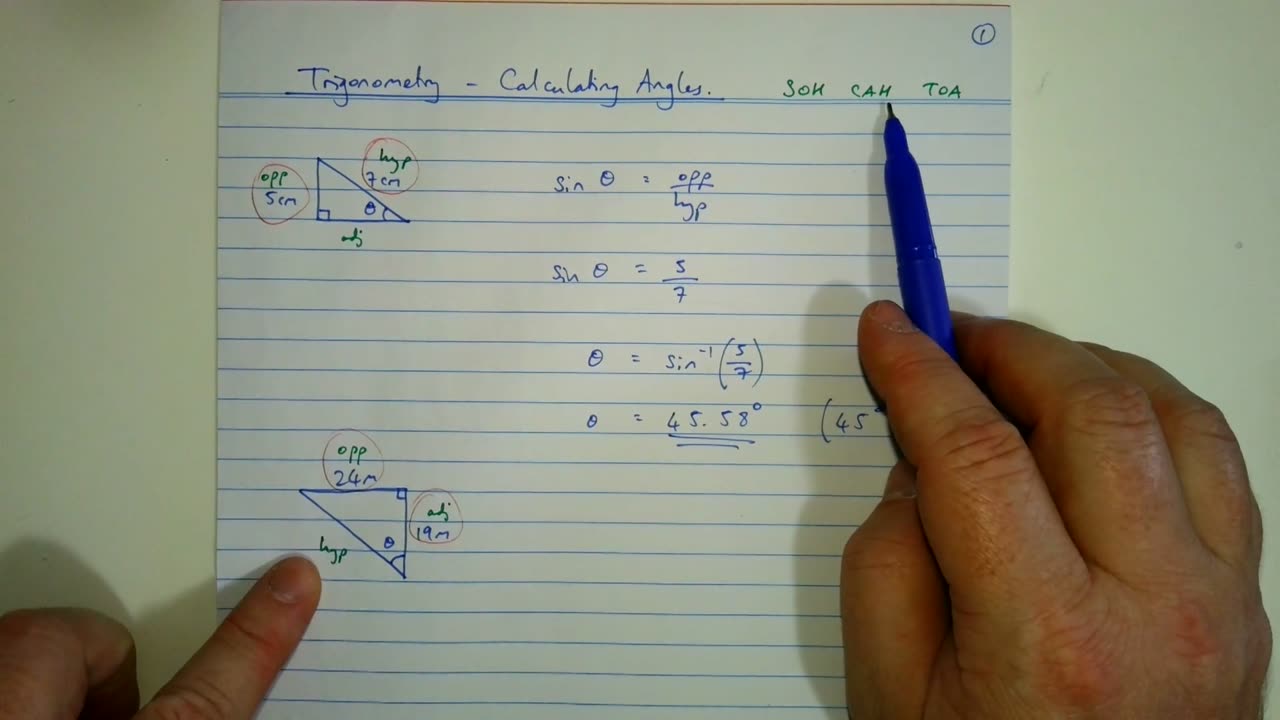 ①
Trigonometry - Calculating Angles. SOH CAH TOA
opp
5cm
hyp
7cm
θ
adj
sin θ = opp/hyp
sin θ = 5/7
θ = sin⁻¹(5/7)
θ = 45.58° (45°
opp
24m
adj
19m
θ
hyp